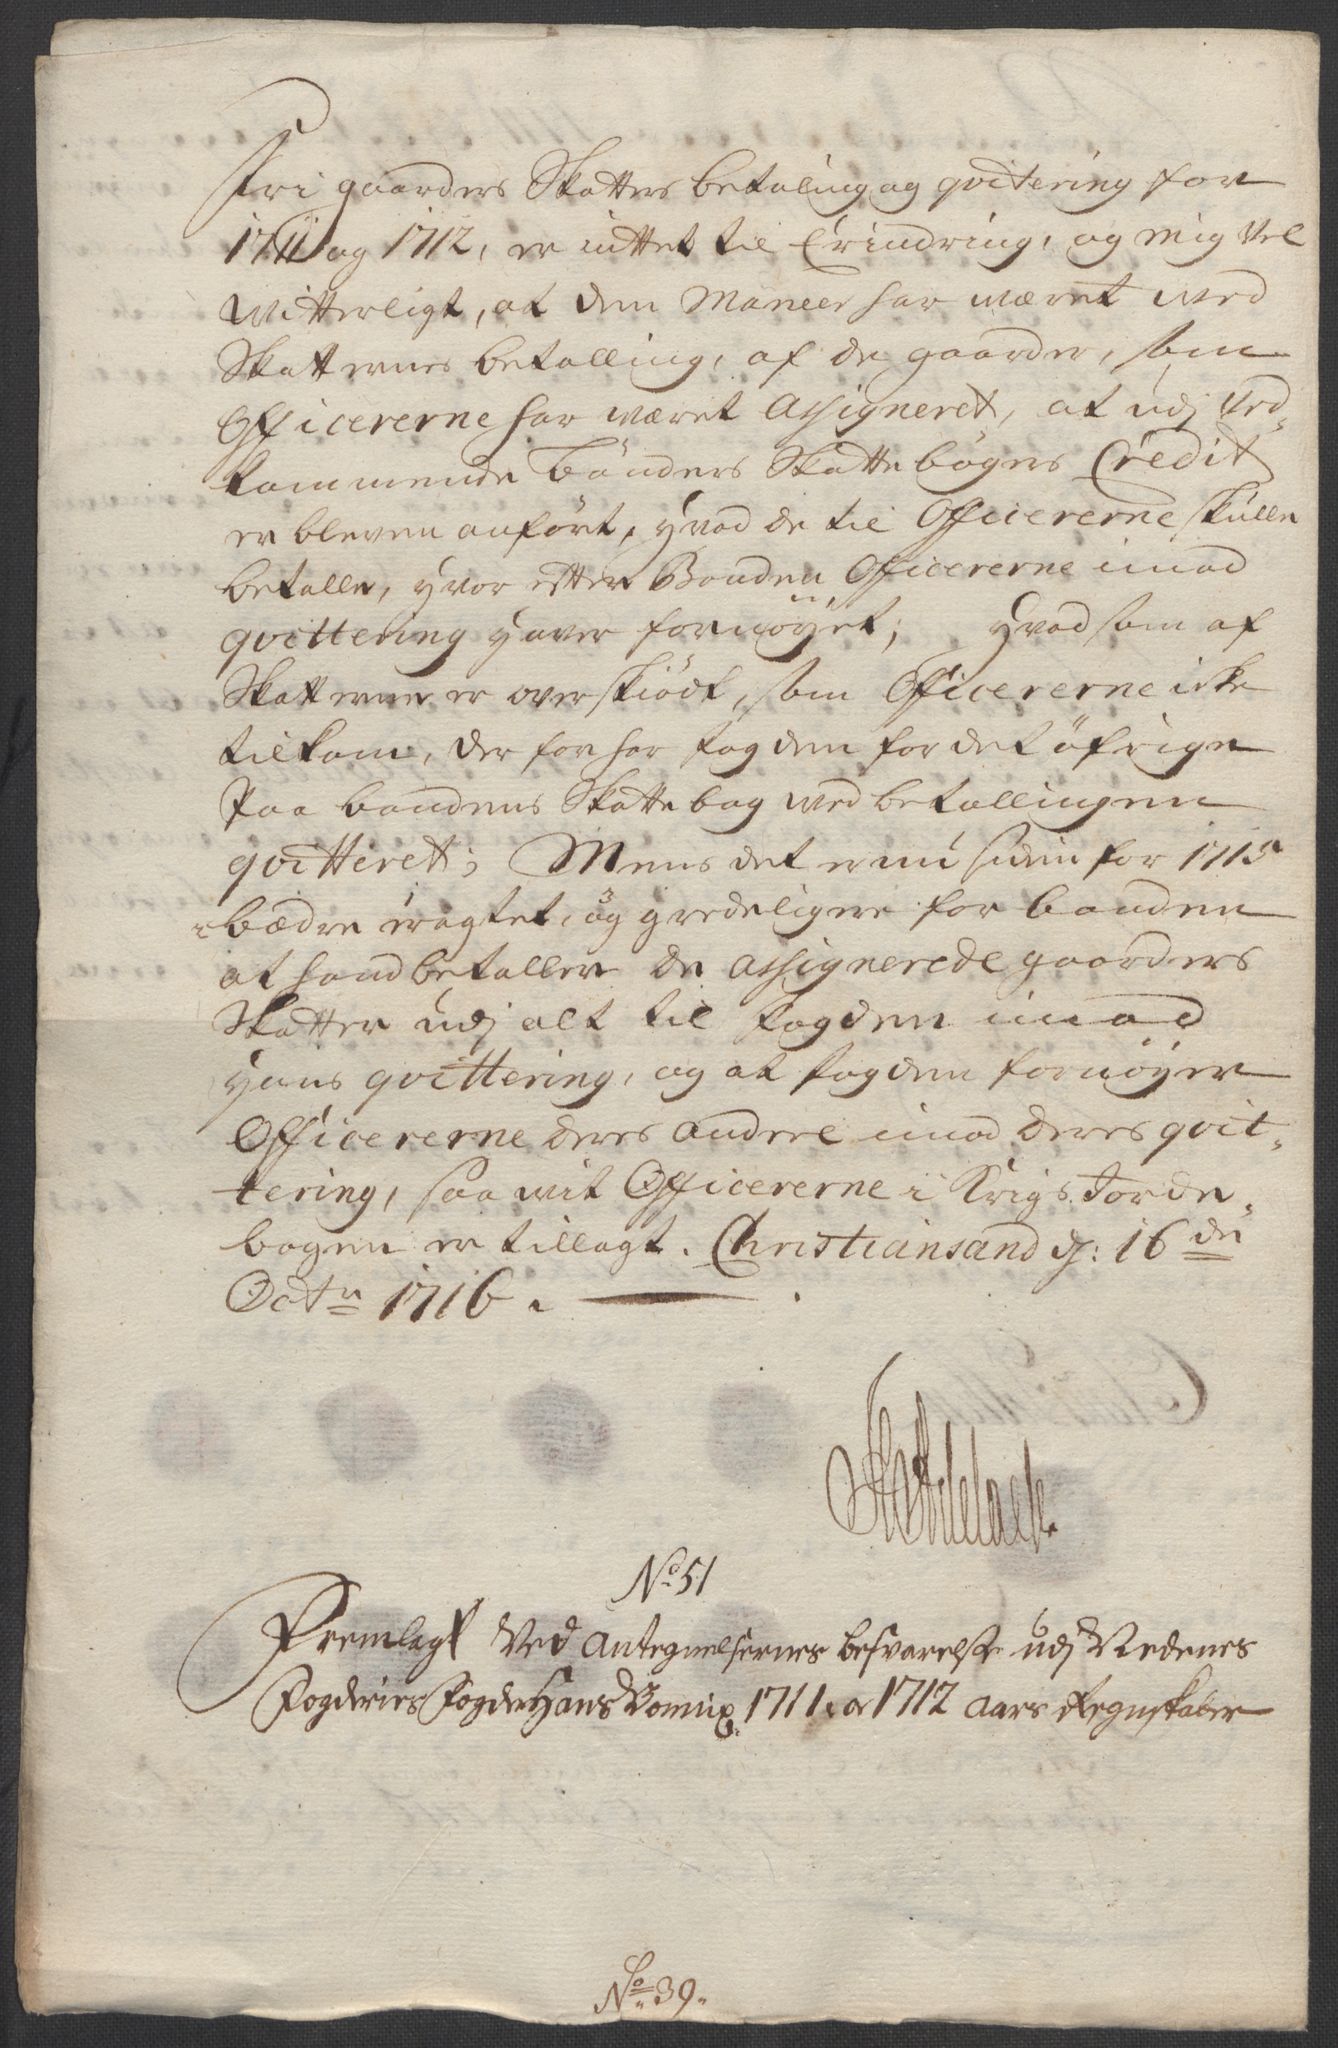 Fri gaarders Skatters betaling og qvitering for
1711 og 1712, er indtet til Erindring, og mig Vel
Witterligt, at dem Maneer har wæret wed
Skatternes betalling, af de gaarder, som
Officererne har wæret Assigneret, at udj Ved-
kommende Bönders Skattebögers Credit
er bleven anfört, hvad de til Officererne skulle
betalle, hvor efter Bonden Officererne imod
qvittering haver fornöyet; hvad som af
Skatterne er overskiödt, som Officererne icke
tilkom, der for har fogden for det öfrige
Paa bondens Skattebog wed betallingen
qvitteret; Mens det er nu siden for 1715
bædre eragtet, og gredeligere for bonden
at hand betaller de assignerede gaarders
Skatter udj alt til fogden imod
hans qvittering, og at fogden fornöyer
Officererne deres andeel imod deres qvit-
tering, saa wit Officererne i Krigs Jorde-
bogen er tillagt. Christiansand d: 16de
Octr 1716.
No 51
Fremlagt Ved Antegnelsernes besvarelse udj Nedenes
Fogderies Fogde Hans 1711 og 1712 Aars Regnskaber
No 39.